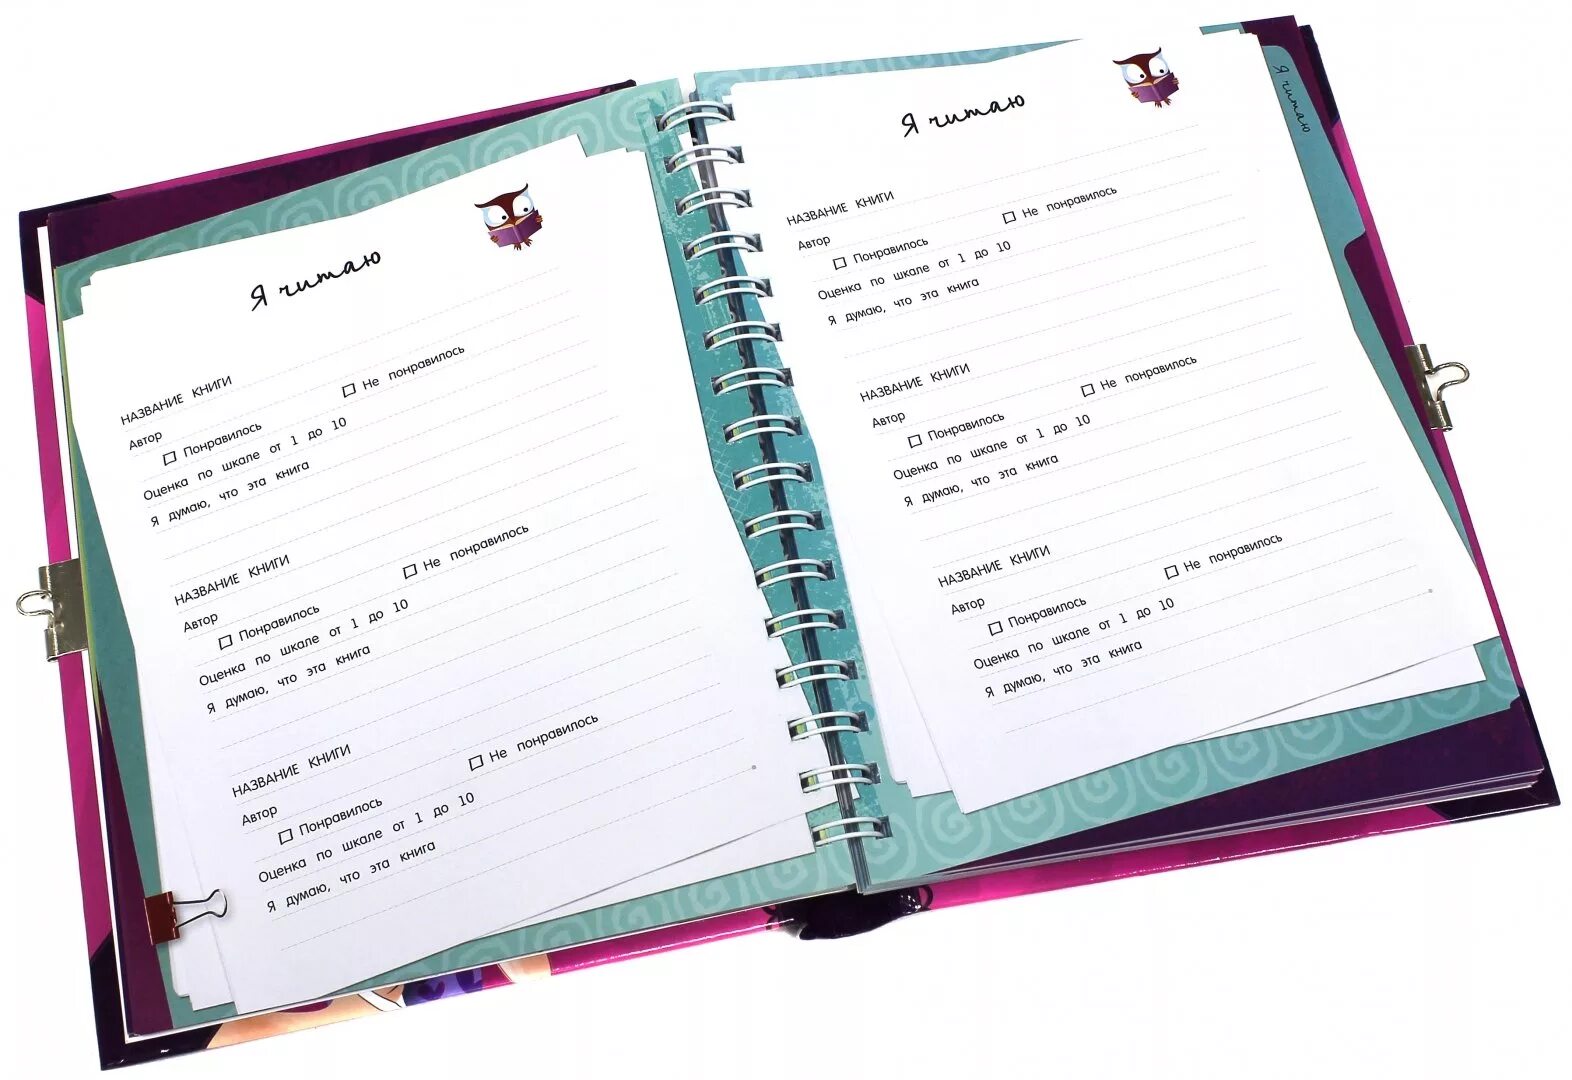 Я читаю
НАЗВАНИЕ КНИГИ
Автор
Понравилось Не понравилось
Оценка по шкале от 1 до 10
Я думаю, что эта книга
НАЗВАНИЕ КНИГИ
Автор
Понравилось Не понравилось
Оценка по шкале от 1 до 10
Я думаю, что эта книга
НАЗВАНИЕ КНИГИ
Автор
Понравилось Не понравилось
Оценка по шкале от 1 до 10
Я думаю, что эта книга
Я читаю
НАЗВАНИЕ КНИГИ
Автор
Понравилось Не понравилось
Оценка по шкале от 1 до 10
Я думаю, что эта книга
НАЗВАНИЕ КНИГИ
Автор
Понравилось Не понравилось
Оценка по шкале от 1 до 10
Я думаю, что эта книга
НАЗВАНИЕ КНИГИ
Автор
Понравилось Не понравилось
Оценка по шкале от 1 до 10
Я думаю, что эта книга
Я читаю